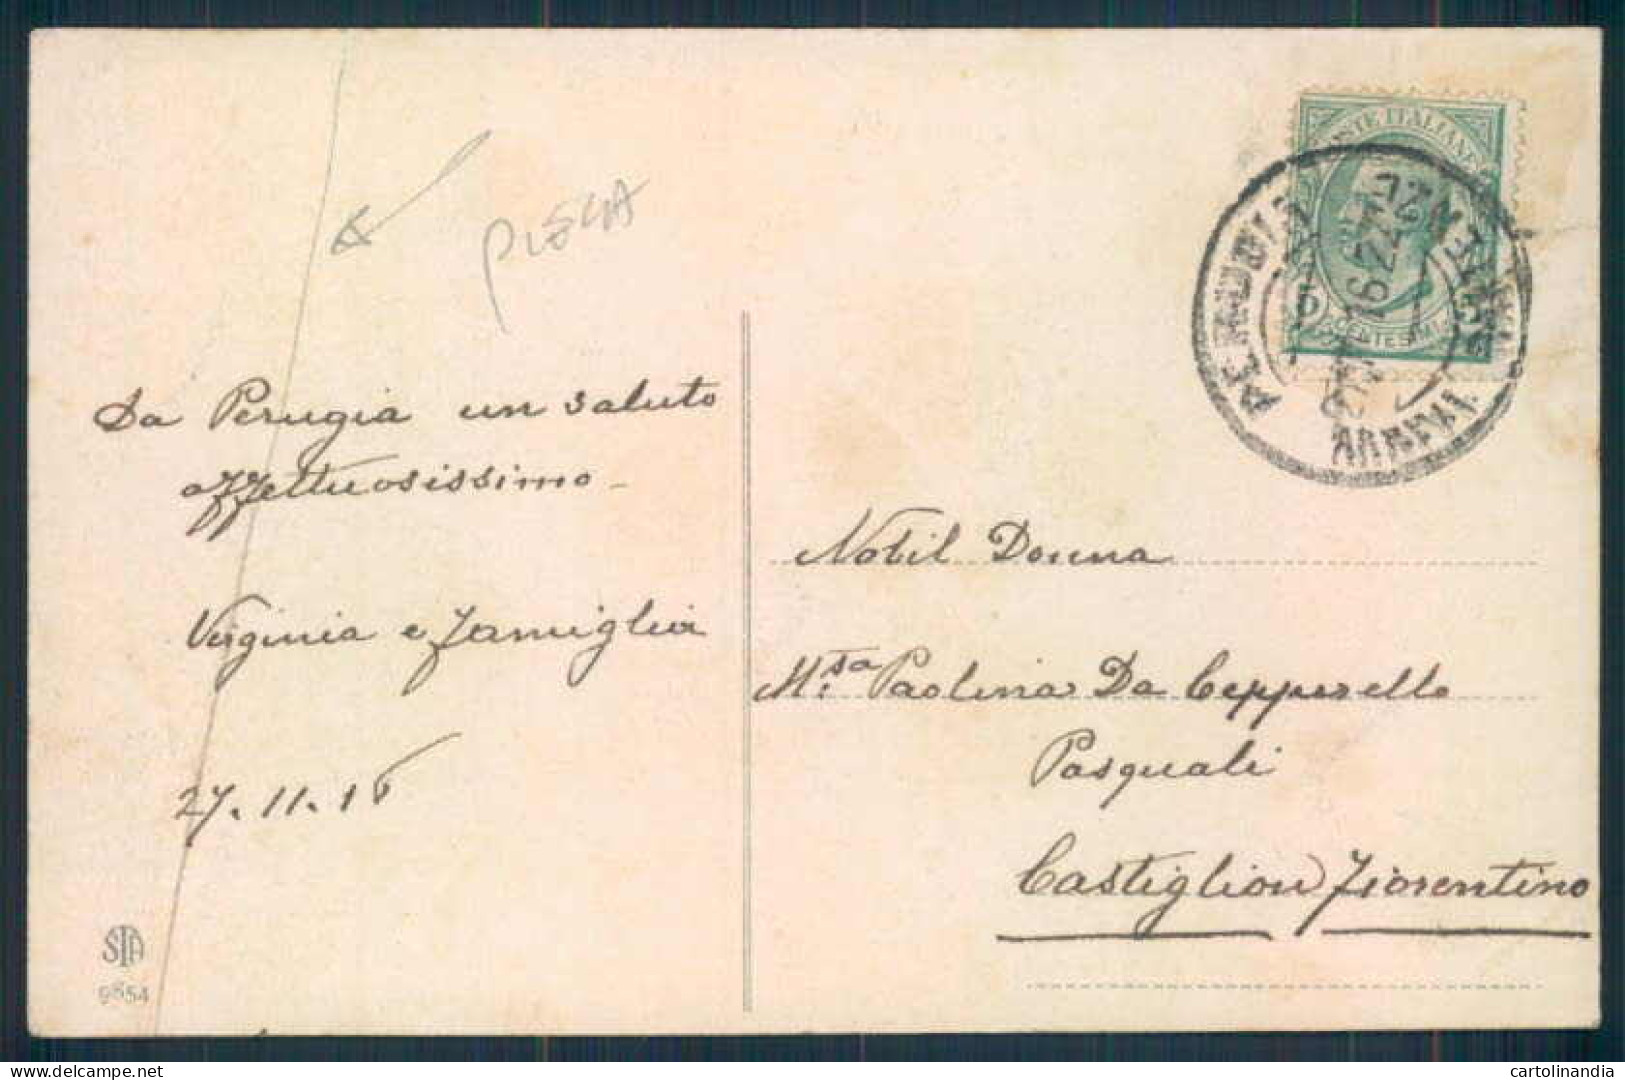 PIEGA
Da Perugia un saluto
affettuosissimo
Virginia e famiglia
27.11.16
STA
9554
POSTE ITALIANE
CENTESIMI
PERUGIA
ARRIVI
Nobil Donna
M.sa Paolina Da Cepperello
Pasquali
Castiglion Fiorentino
cartolinandia